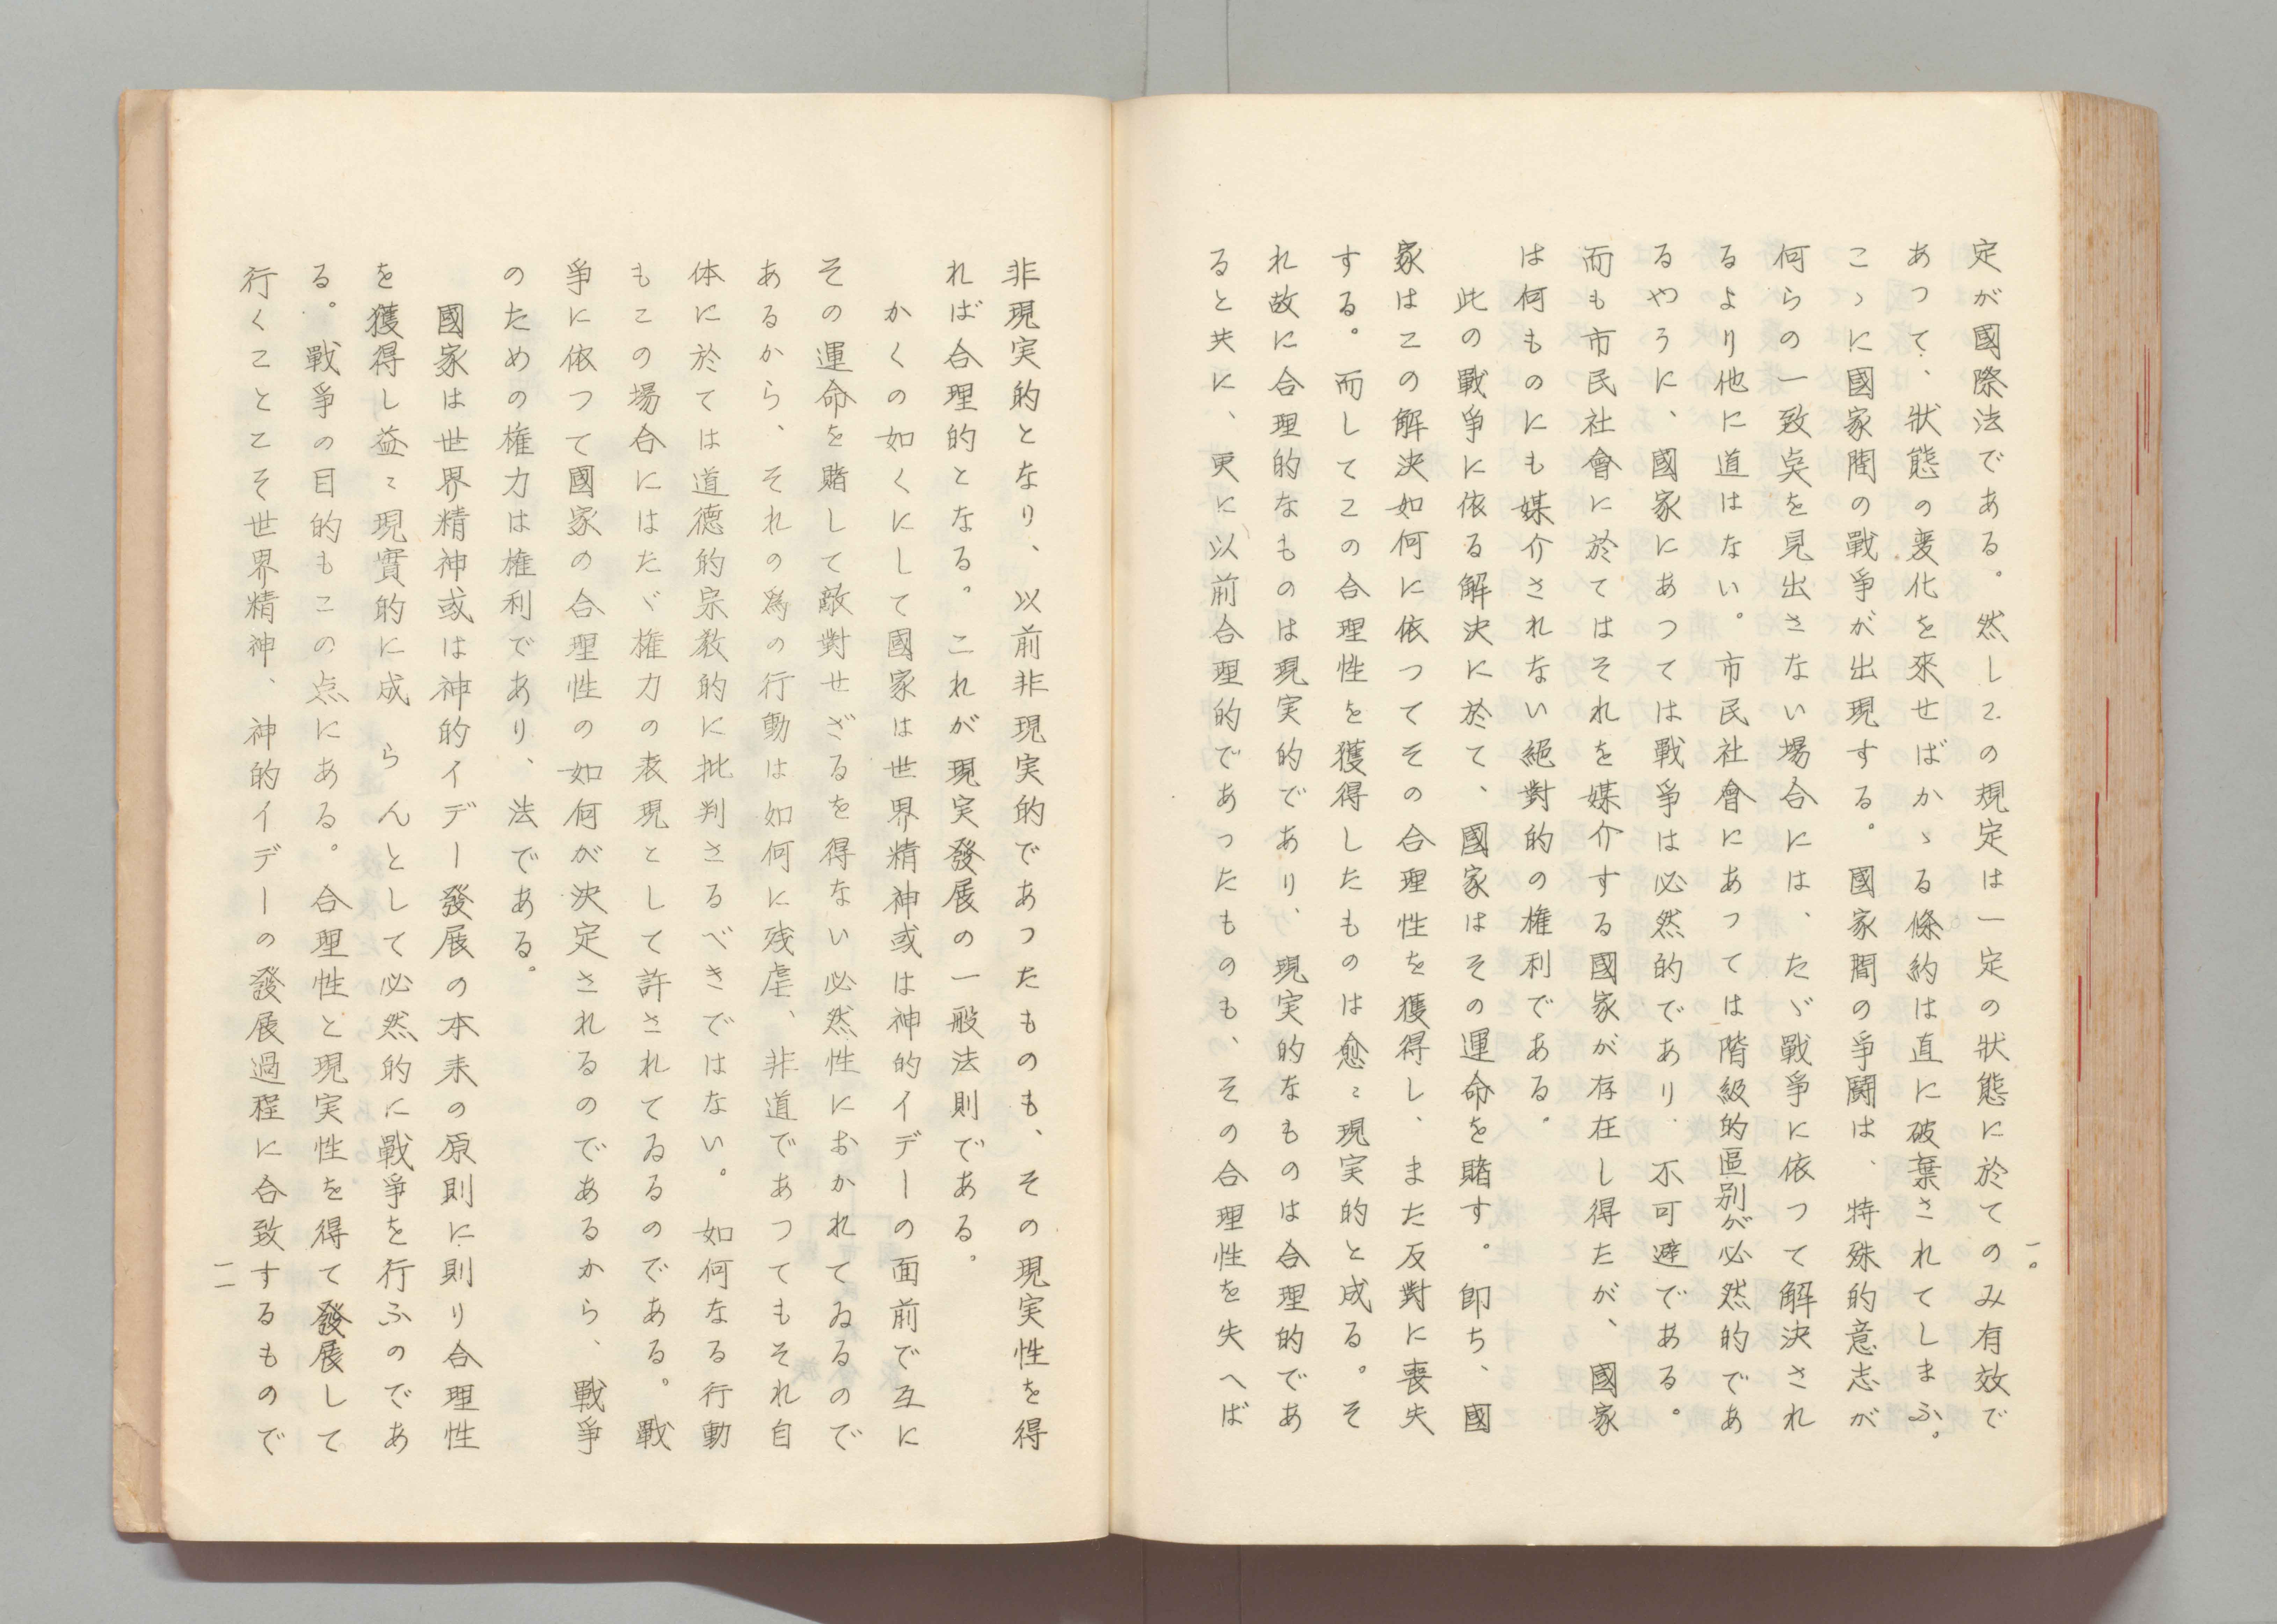 定が國際法である。然しこの規定は一定の狀態に於てのみ有效で
あつて、狀態の変化を來せばかゝる條約は直に破棄されてしまふ。
こゝに國家間の戰爭が出現する。國家間の爭鬪は、特殊的意志が
何らの一致点を見出さない場合には、たゞ戰爭に依つて解決され
るより他に道はない。市民社會にあつては階級的區別が必然的であ
るやうに、國家にあつては戰爭は必然的であり、不可避である。
而も市民社會に於てはそれを媒介する國家が存在し得たが、國家
は何ものにも媒介されない絕對的の権利である。
此の戰爭に依る解決に於て、國家はその運命を賭す。卽ち、國
家はこの解決如何に依つてその合理性を獲得し、また反對に喪失
する。而してこの合理性を獲得したものは愈〻現実的と成る。そ
れ故に合理的なものは現実的であり、現実的なものは合理的であ
ると共に、更に以前合理的であつたものも、その合理性を失へば
一〇
非現実的となり、以前非現実的であつたものも、その現実性を得
れば合理的となる。これが現実發展の一般法則である。
かくの如くにして國家は世界精神或は神的イデーの面前で互に
その運命を賭して敵對せざるを得ない必然性におかれてゐるので
あるから、それの爲の行動は如何に残虐、非道であつてもそれ自
体に於ては道德的宗教的に批判さるべきではない。如何なる行動
もこの場合にはたゞ権力の表現として許されてゐるのである。戰
爭に依つて國家の合理性の如何が決定されるのであるから、戰爭
のための権力は権利であり、法である。
國家は世界精神或は神的イデー發展の本来の原則に則り合理性
を獲得し益〻現實的に成らんとして必然的に戰爭を行ふのであ
る。戰爭の目的もこの点にある。合理性と現実性を得て發展して
行くことこそ世界精神、神的イデーの發展過程に合致するもので
一一